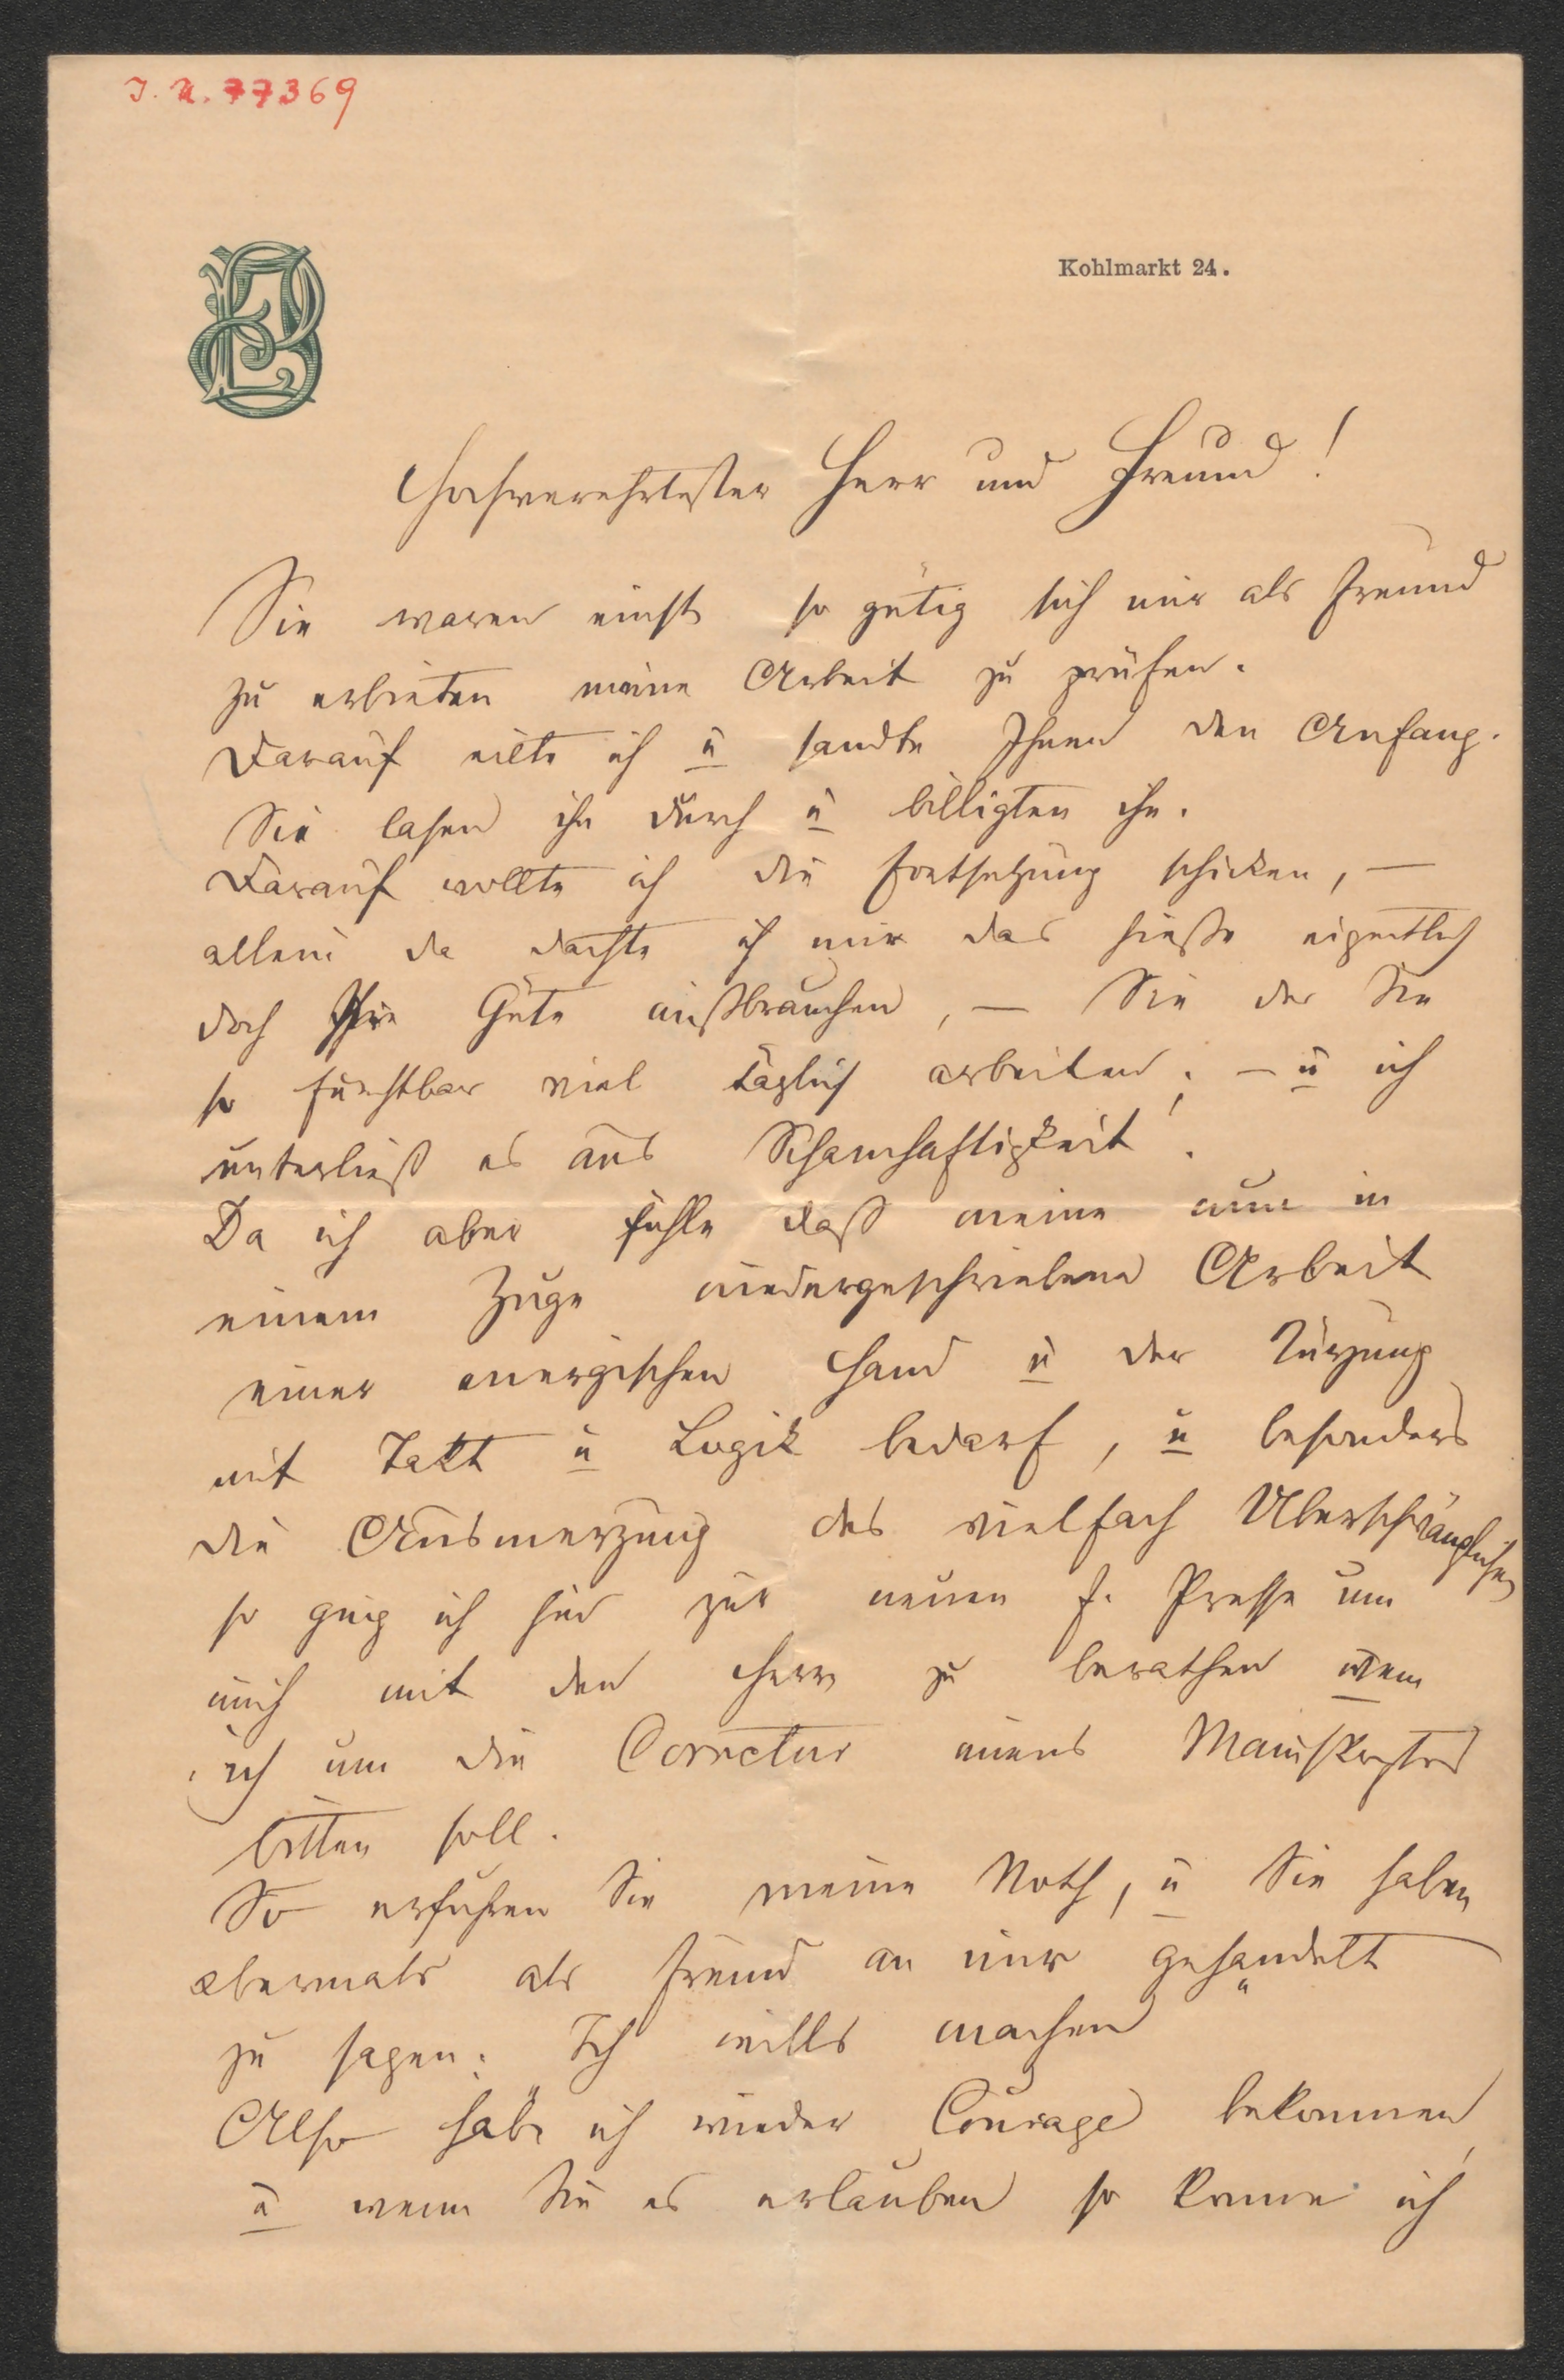 J. N. 77369
Kohlmarkt 24.
Hochverehrtester Herr und Freund!
Sie waren einst so gütig sich mir als Freund
zu erbieten meine Arbeit zu prüfen.
Darauf eilte ich u sandte Ihnen den Anfang.
Sie lasen ihn durch u billigten ihn.
Darauf wollte ich die Fortsetzung schicken, —
allein da dachte ich mir das hieße eigentlich
doch Ihre Güte mißbrauchen, — Sie der Sie
so furchtbar viel täglich arbeiten; — u ich
unterließ es aus Schamhaftigkeit.
Da ich aber fühle daß meine nun in
einem Zuge niedergeschriebene Arbeit
einer energischen Hand u der Kürzung
mit Takt u Logik bedarf, u besonders
die Ausmerzung des vielfach Überschwänglichen
so ging ich hin zur neuen f. Presse um
mich mit den Herrn zu berathen wem
ich um die Correctur meines Manuskriptes
bitten soll.
So erfuhren Sie meine Noth, u Sie haben
abermals als Freund an mir gehandelt
zu sagen: „Ich wills machen“
Also habe ich wieder Courage bekommen,
u wenn Sie es erlauben so komme ich